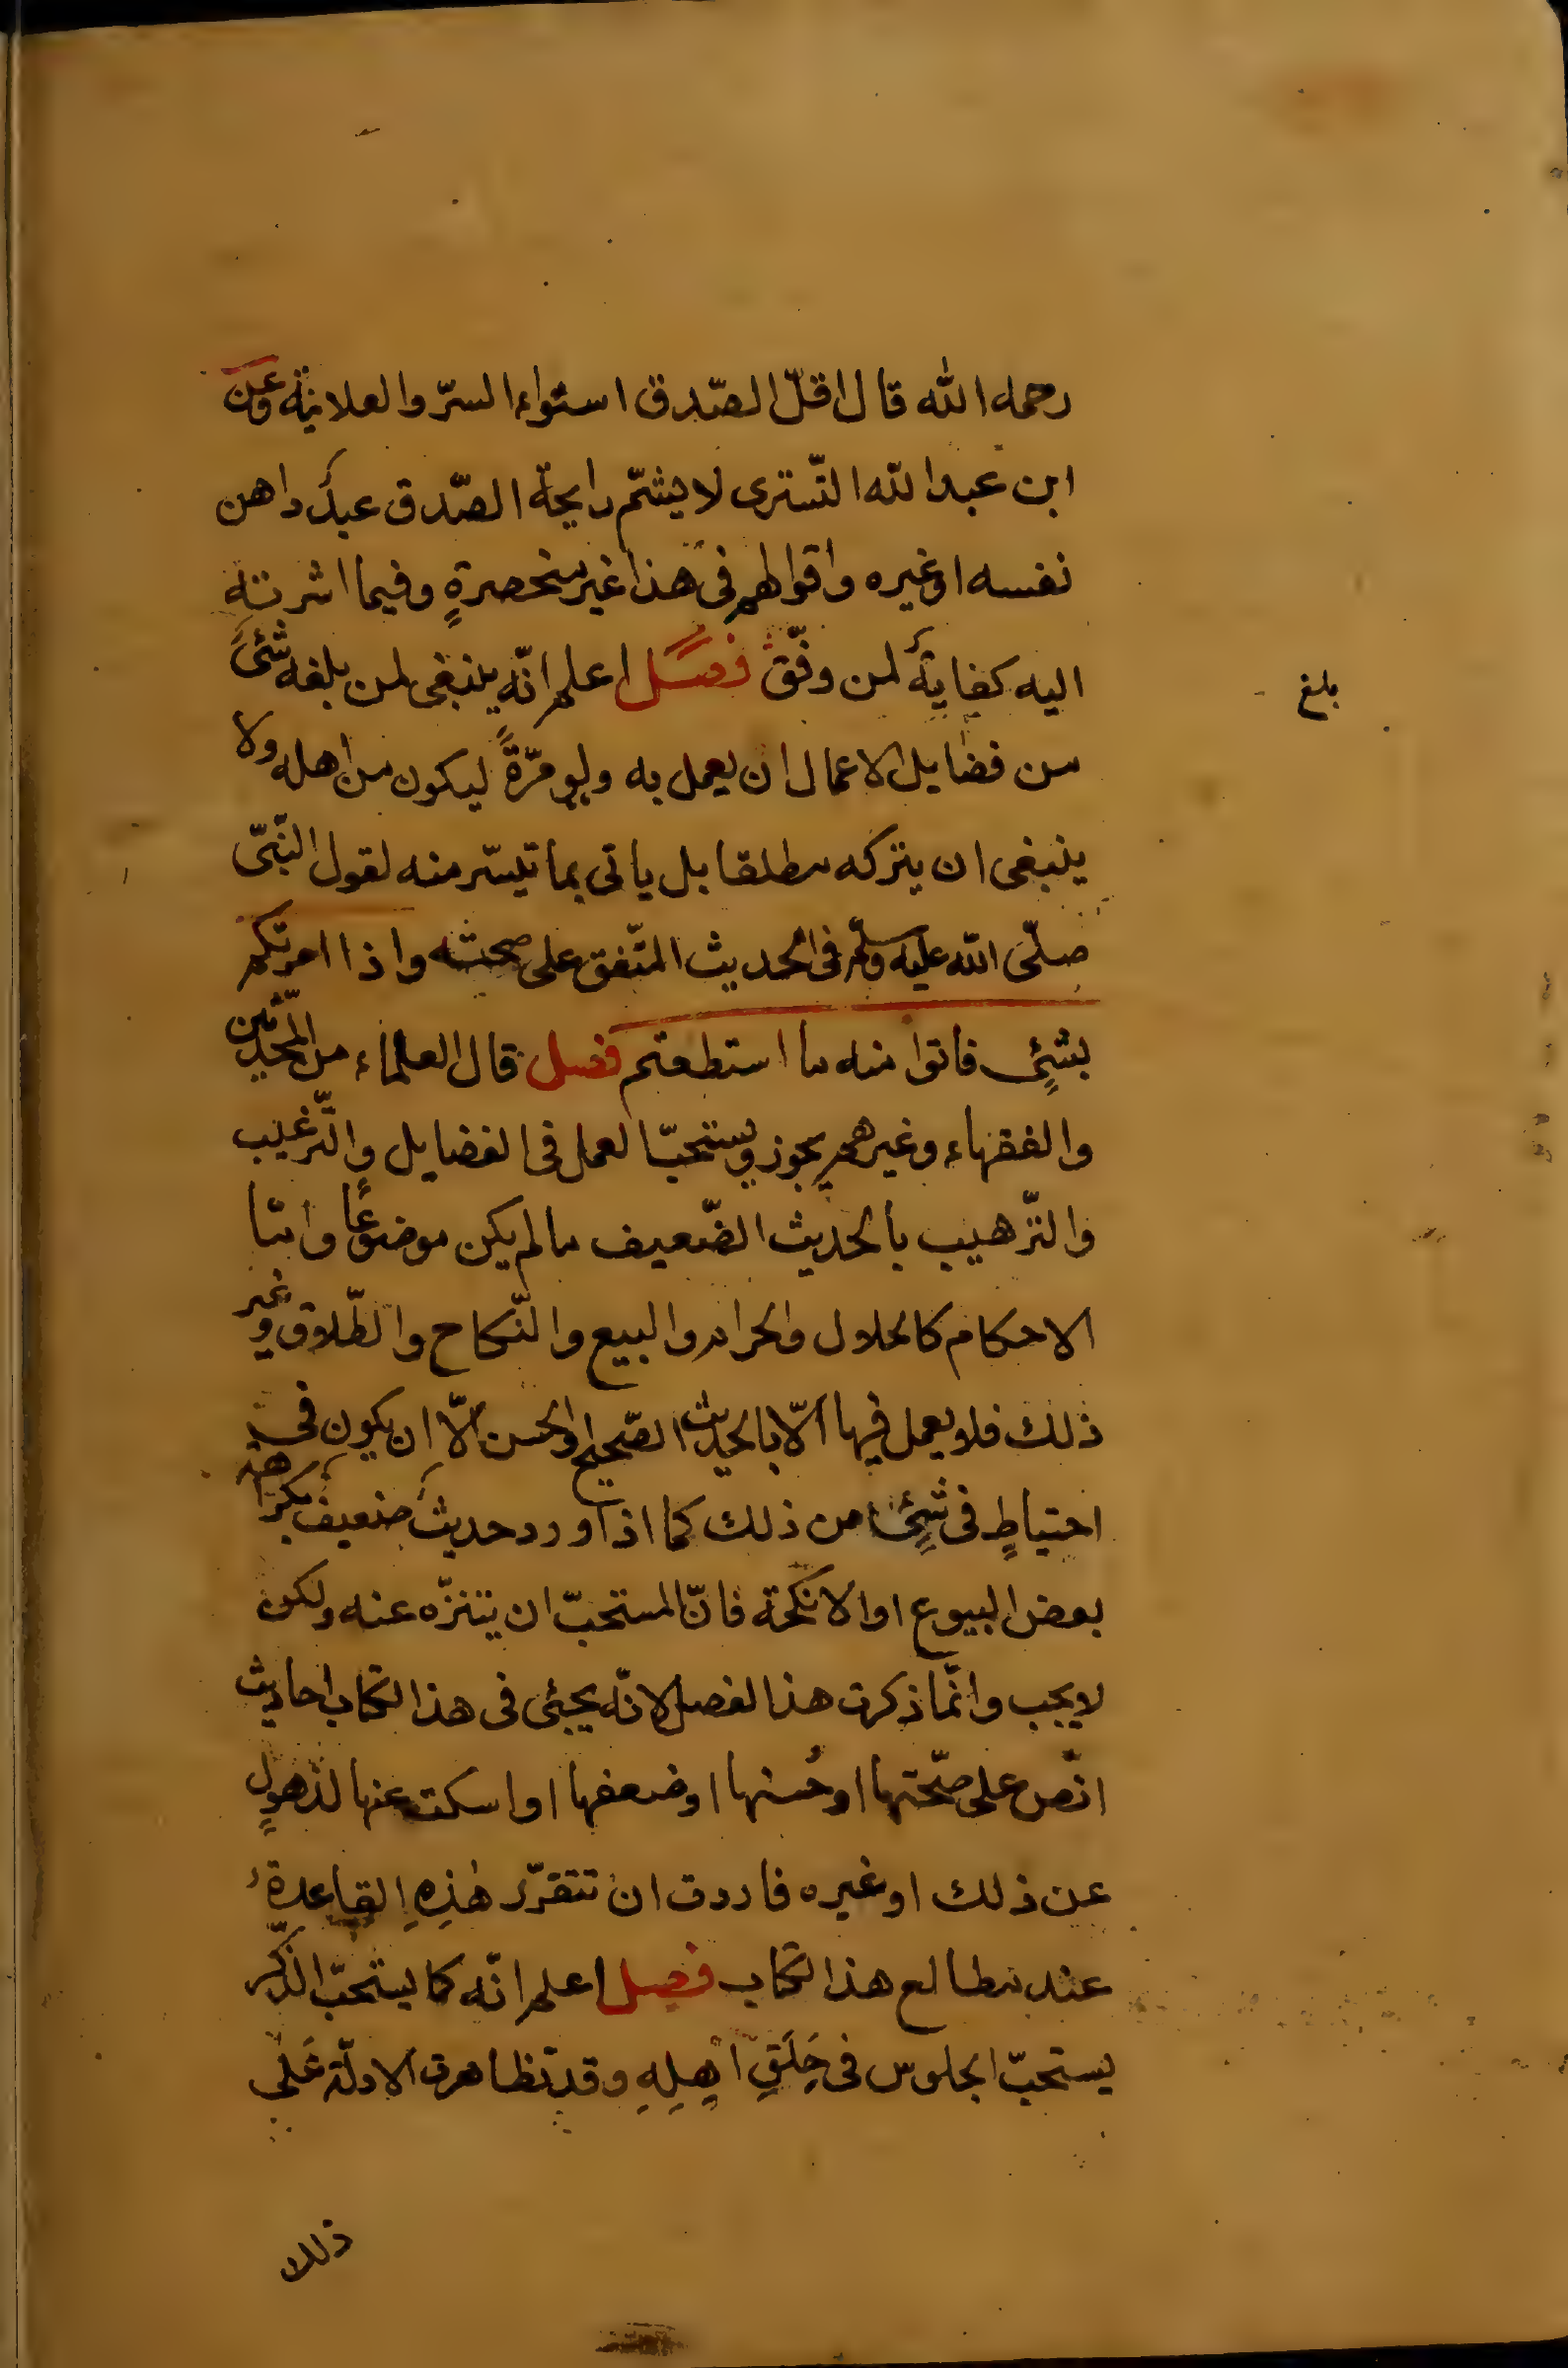 رحمه الله قال اقلّ الصّدق استواء السرّ والعلانية وعن
ابن عبد الله التّسترى لا يشمّ رايحة الصّدق عبد داهن
نفسه او غيره واقوالهم فى هذا غير منحصرةٍ وفيما اشرت
اليه كفايةٌ لمن وفّق فصل اعلم انّه ينبغى لمن بلغه شئ
من فضايل الاعمال ان يعمل به ولو مرّةً ليكون من اهله ولا
ينبغى ان يتركه مطلقا بل ياتى بما تيسّر منه لقول النّبىّ
صلّى الله عليه وسلّم فى الحديث المتّفق على صحته واذا امرتكم
بشئٍ فاتوا منه ما استطعتم فصل قال العلماء من المحدّثين
والفقهاء وغيرهم يجوز ويستحبّ العمل فى الفضايل والتّرغيب
والتّرهيب بالحديث الضّعيف ما لم يكن موضوعًا وامّا
الاحكام كالحلال والحرام والبيع والنّكاح والطّلاق وغير
ذلك فلا يعمل فيها الّا بالحديث الصّحيح او الحسن الّا ان يكون فى
احتياطٍ فى شئٍ من ذلك كما اذا ورد حديث ضعيف بكراهة
بعض البيوع او الانكحة فانّ المستحبّ ان يتنزّه عنه ولكن
لا يجب وانّما ذكرت هذا الفصل لانّه يجئ فى هذا الكتاب احاديث
انّص على صحّتها او حُسنها او ضعفها او اسكت عنها لذهولٍ
عن ذلك او غيره فاردت ان تتقرّر هٰذِهِ القاعدةُ
عند مطالع هذا الكتاب فصل اعلم انّه كما يستحبّ الذّكر
يستحبّ الجلوس فى حِلَقِ اهلِهِ وقد تظاهرت الادلّة عَلى
ذلك
بلغ